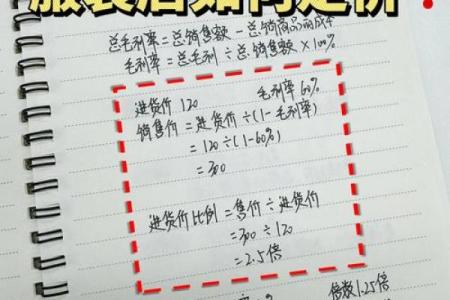 服装店如何定价？
总毛利率=总销售额-总销商品的成本
毛利率=总毛利÷总销售额×100%
进货价 120 毛利率60%
销售价=进货价÷(1-毛利率)
=120÷(1-60%)
=300
进货价比例=售价÷进货价
=300÷120
=2.5倍
倍数1.25倍